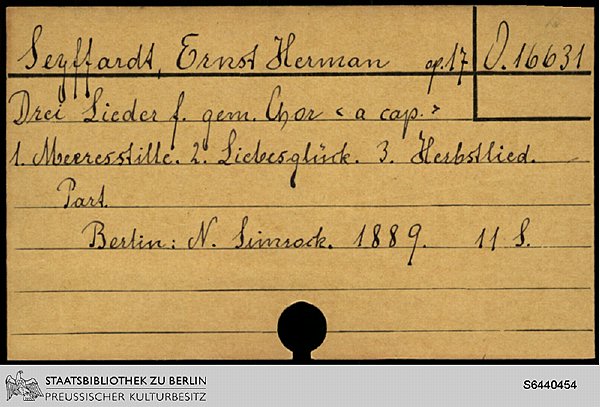 Seyffardt, Ernst Herman op.17 O.16631
Drei Lieder f. gem. Chor < a cap. >
1. Meeresstille. 2. Liebesglück. 3. Herbstlied.
Part.
Berlin: N. Simrock. 1889. 11 S.
STAATSBIBLIOTHEK ZU BERLIN
PREUSSISCHER KULTURBESITZ
S6440454